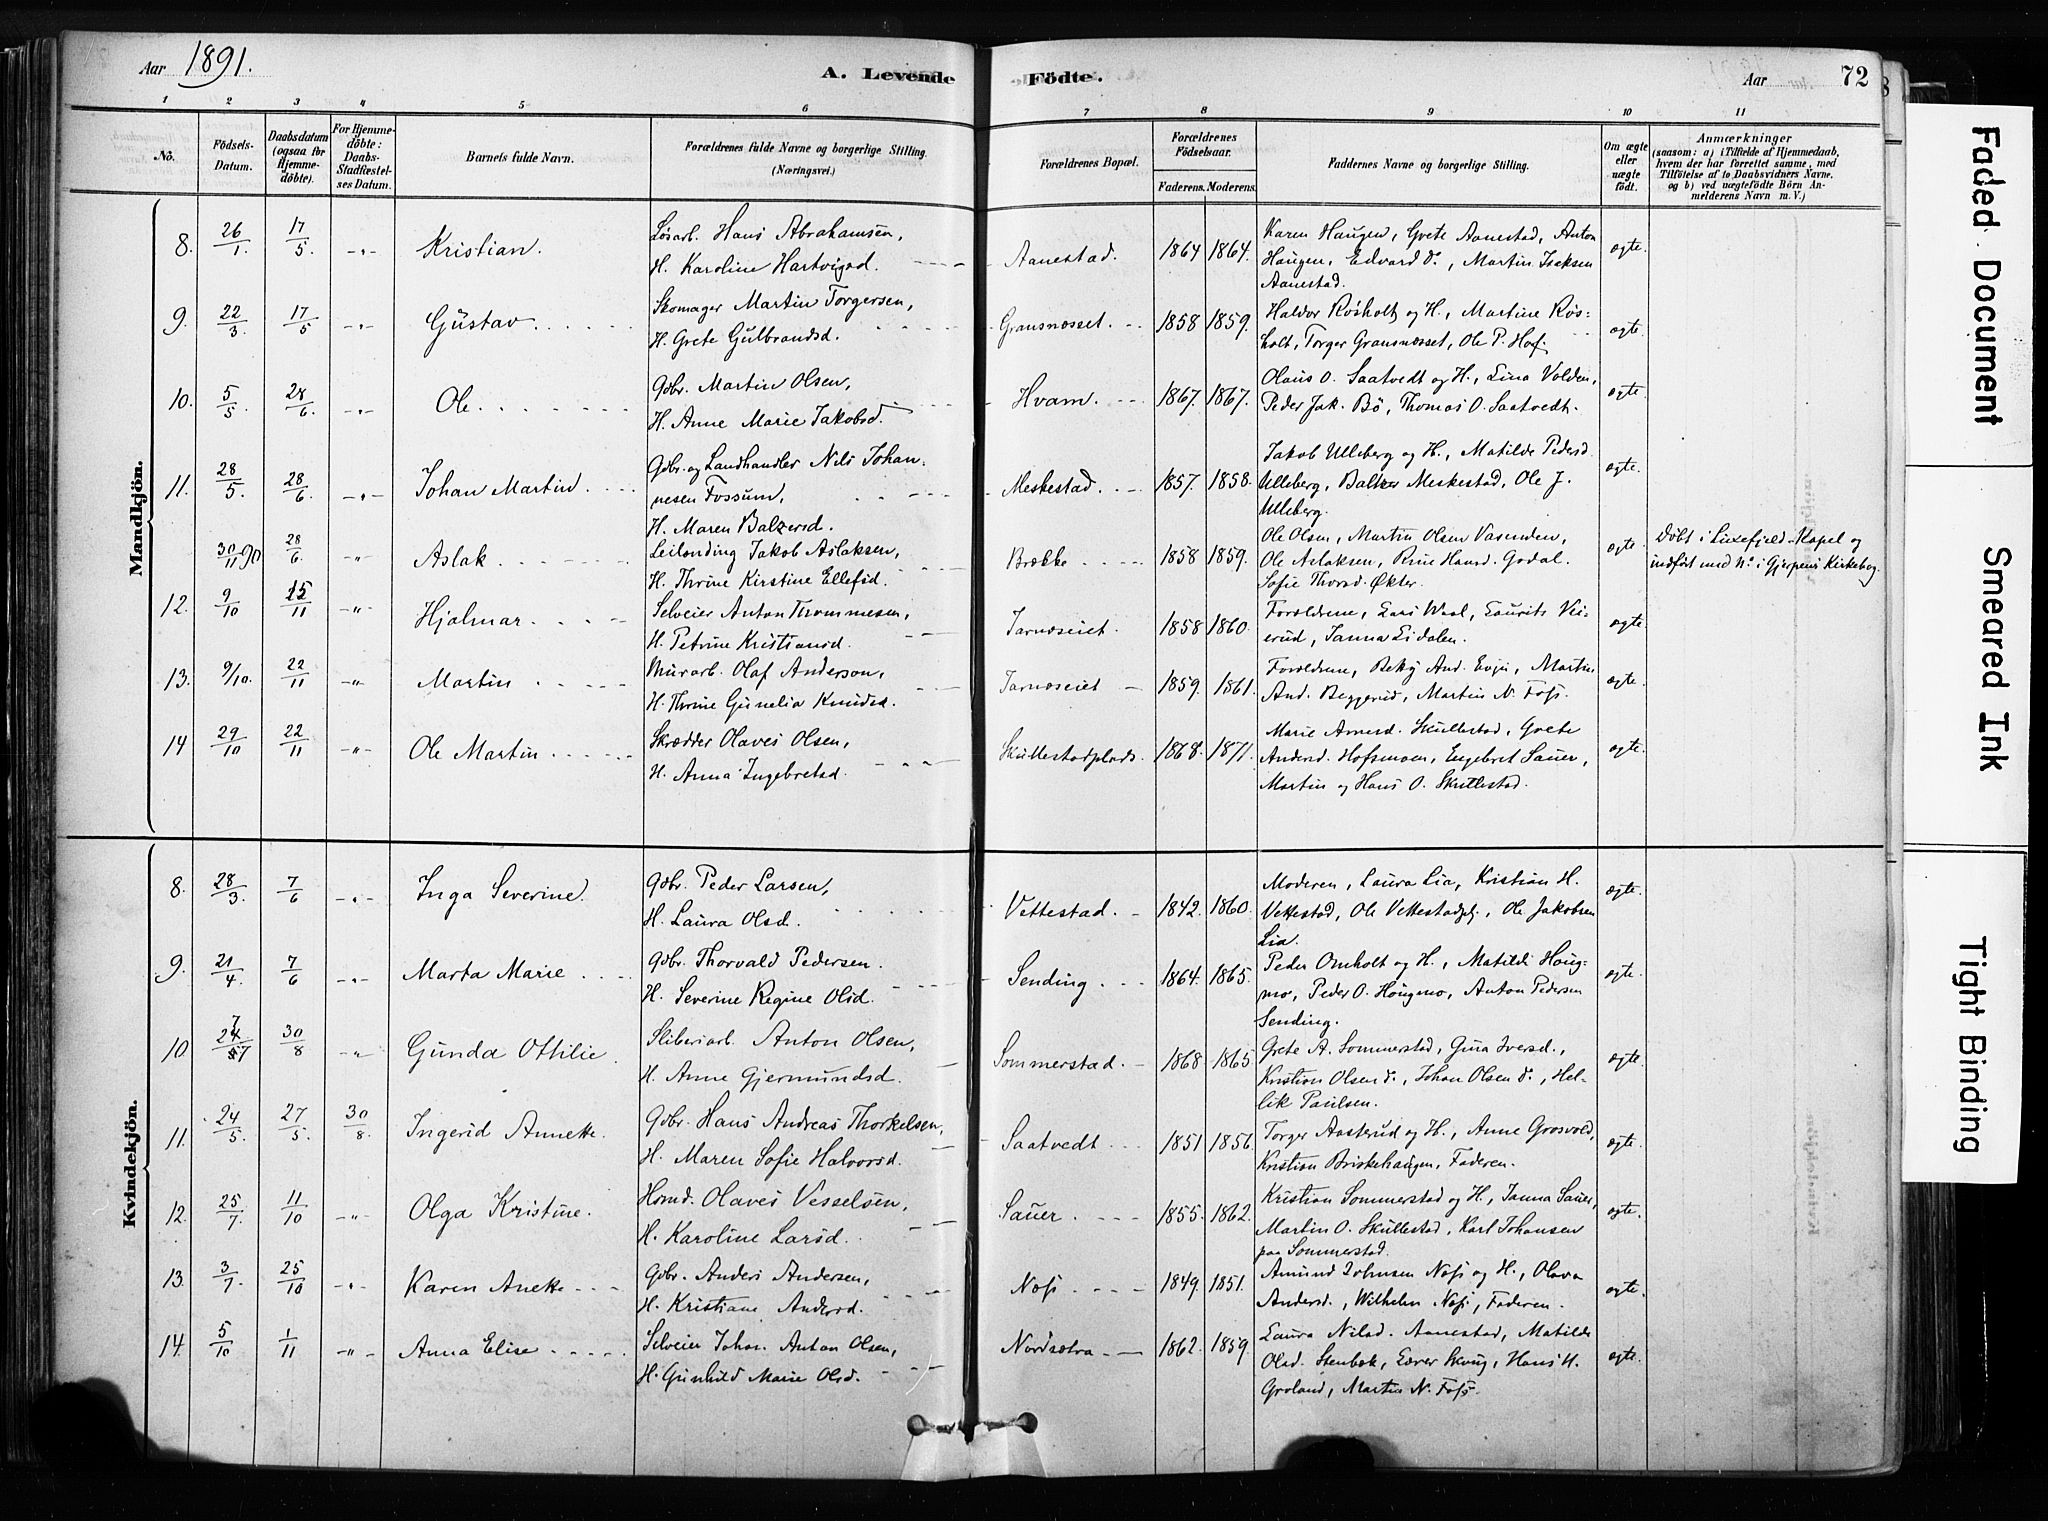 Aar 1891. A. Levende Födte. Aar 72
1 2 3 4 5 6 7 8 9 10 11
No. Födsels-Datum. Daabsdatum (ogsaa for Hjemme-döbte). For Hjemme-döbte: Daabs-Stadfæstel-ses Datum. Barnets fulde Navn. Forældrenes fulde Navne og borgerlige Stilling. (Næringsvei.) Forældrenes Bopæl. Forældrenes Födselsaar. Faderens. Moderens. Faddernes Navne og borgerlige Stilling. Om ægte eller uægte födt. Anmærkninger (saasom: a) i Tilfælde af Hjemmedaab, hvem der har forrettet samme, med Tilföielse af to Daabsvidners Navne. og b) ved uægtefödte Börn An-melderens Navn m. V.)
Mandkjön.
8. 26/1. 17/5. -"- Kristian. Løsarb. Hans Abrahamsen, Aanestad. 1864 1864. Karen Haugen, Grete Aanestad, Anton ægte.
H. Karoline Hartvigsd. Haugen, Edvard do., Martin Isaksen
Aanestad.
9. 22/3. 17/5 -"- Gustav. Skomager Martin Torgersen, Gransnæsset. 1858 1859. Haldor Røsholt og H., Martine Røs- ægte.
H. Grete Gulbrandsd. holt, Torger Gransnæsset, Ole P. Hof.
10. 5/5. 28/6. -"- Ole. Gdbr. Martin Olsen, Hvam. 1867. 1867. Olaus O. Saatvedt og H., Lina Volden, ægte.
H. Anne Marie Jakobsd. Peder Jak. Bö, Thomas O. Saatvedt.
11. 28/5. 28/6. -"- Johan Martin. Gdbr. og Landhandler Nils Johan- Meskestad. 1857. 1858. Jakob Ulleberg og H., Matilde Pedersd. ægte.
nesen Fossum, Ulleberg, Balzer Meskestad, Ole J.
H. Maren Balzersd. Ulleberg.
30/11 90 28/6. -"- Aslak. Leilending Jakob Aslaksen, Brække 1858 1859. Ole Olsen, Martin Olsen ægte. Døbt i Luxefjeld Kapel og
H. Thrine Kirstine Ellefsd. Ole Aslaksen, Hansd. Godal. indført med No. i Gjerpens Kirkebog.
Sofie Thorsd. Økter.
12. 9/10 15/11 -"- Hjalmar. Selveier Anton Thommesen, Jarnæseiet. 1858 1860. Forældrene, Lars Waal, Laurits ægte.
H. Petrine Kristiansd. Janna Lidalen.
13. 9/10. 22/11 -"- Martin Murarb. Olaf Anderson, Jarnæseiet 1859. 1861. Forældrene, And. Evju, Martin ægte.
H. Thrine Gunelia Knudsd. And. Beggerud, Martin N. Foss.
14 29/10 22/11 -"- Ole Martin Skrædder Olaves Olsen, Skullestadplads. 1868. 1871. Marie Skullestad, Grete ægte.
H. Anna Ingebretsd. Andersd. Hofsmoen, Engebret Sauer,
Martin og Hans O. Skullestad.
Kvindekjön.
8. 28/3. 7/6 -"- Inga Severine. Gdbr. Peder Larsen, Vettestad. 1842. 1860. Moderen, Laura Lia, Kristian H. ægte.
H. Laura Olsd. Vettestad, Ole Vettestadpl., Ole Jakobsen
Lia.
9. 21/4. 7/6 -"- Marta Marie Gdbr. Thorvald Pedersen. Sending 1864. 1865. Peder Omholt og H., Matilde Houg- ægte.
H. Severine Regine Olsd. mo, Peder O. Hougmo, Anton Pedersen
Sending.
10 24/7 30/8 -"- Gunda Ottilie. Sliberiarb. Anton Olsen, Sommerstad. 1868 1865. Grete A. Sommerstad, Gina Iversd., ægte.
H. Anne Gjermundsd. Kristian Olsen do., Johan Olsen do., Hel-
lik Paulsen.
11. 24/5. 27/5. 30/8. Ingerid Annette. Gdbr. Hans Andreas Thorkelsen, Saatvedt 1851 1856. Torger Aasterud og H., Anne Grosvold, ægte.
H. Maren Sofie Halvorsd. Kristian Briskehaugen, Faderen.
12. 25/7. 11/10 -"- Olga Kristine. Hsmd. Olaves Vesselsen, Sauer 1855. 1862. Kristian Sommerstad og H., Janna Sauer, ægte.
H. Karoline Larsd. Martin O. Skullestad, Karl Johansen
paa Sommerstad.
13. 3/7. 25/10 -"- Karen Anette Gdbr. Anders Andersen, Næss 1849. 1851. Amund Johnsen Næss og H., Olava ægte.
H. Kristiane Andersd. Andersd., Wilhelm Næss, Faderen.
14. 5/10 1/11 -"- Anna Elise Selveier Johan Anton Olsen, Nordsætra 1862. 1859. Laura Nilsd. Aanestad, Matilde ægte.
H. Gunhild Marie Olsd. Olsd. Stenbæk, Skoug, Hans H.
Groland, Martin N. Foss.
Faded Document
Smeared Ink
Tight Binding